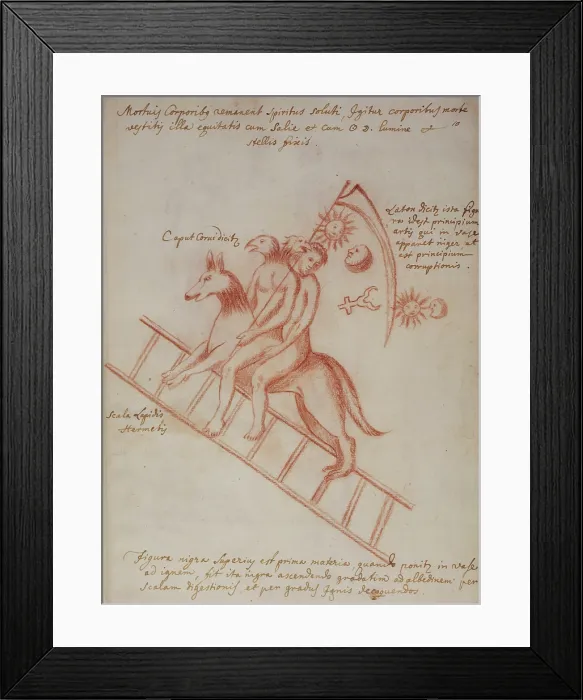 Mortuis Corporibꝫ remanent Spiritus soluti, Igitur corporibus morte
vestitis illa equitatis cum Salie et cum ☉ ☽. lumine et
stellis fixis.
Caput Corui dicitꝫ
Laton dicitꝫ ista figu
ra idest principium
artis qui in vase
apparet niger ut
est principium
corruptionis.
Scala Lapidis
Hermetis
Figura nigra superius est prima materia quando ponitꝫ in vase
ad ignem, fit ita nigra ascendendo gradatim ad albedinem per
Scalam digestionis, et per gradus Ignis decoquendos.